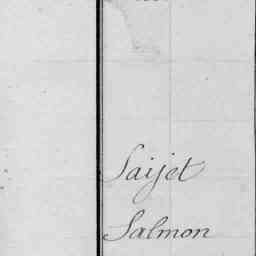 Saijet
Salmon